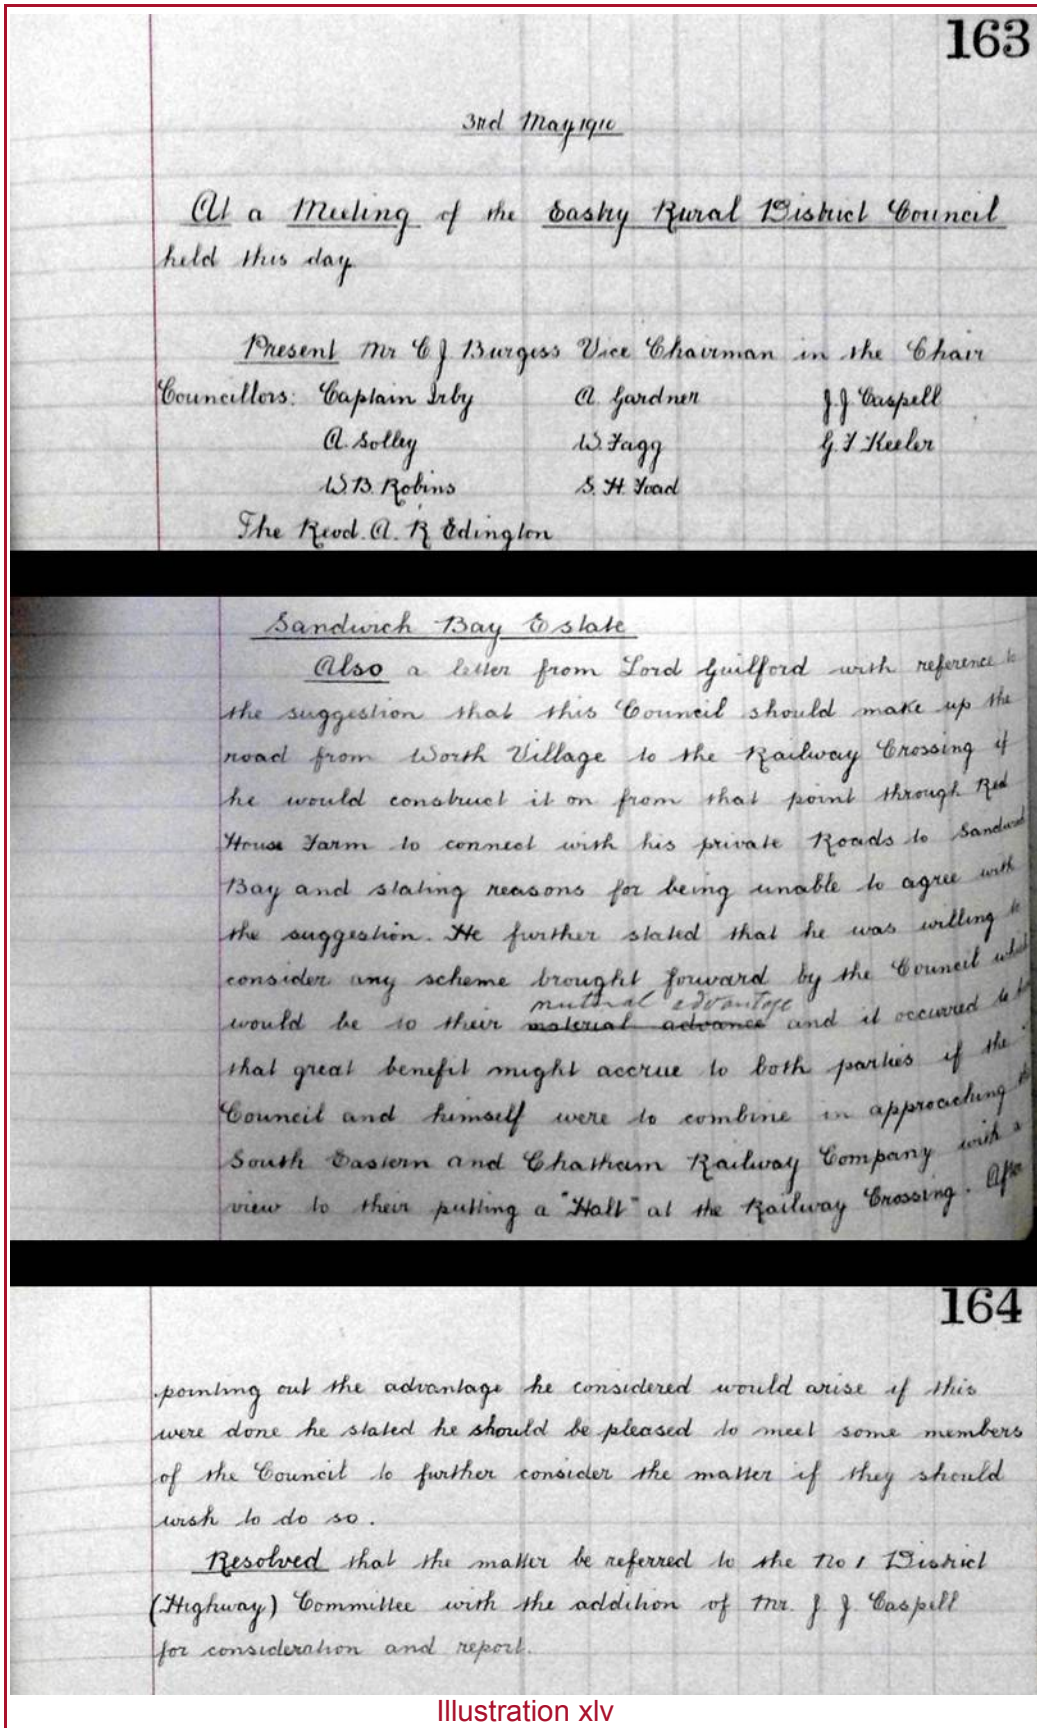 163
3rd May 1910
At a Meeting of the Eastry Rural District Council
held this day.
Present Mr C. J. Burgess Vice Chairman in the Chair
Councillors: Captain Irby A. Gardner J. J. Caspell
A. Solley W. Fagg G. F Keeler
W. B. Robins S. H. Foad
The Revd. A. R Edington
Sandwich Bay Estate
Also a letter from Lord Guilford with reference to
the suggestion that this Council should make up the
road from Worth Village to the Railway Crossing if
he would construct it on from that point through Red
House Farm to connect with his private Roads to Sandwich
Bay and stating reasons for being unable to agree with
the suggestion. He further stated that he was willing to
consider any scheme brought forward by the Council which
mutual advantage
would be to their material advance and it occurred to
that great benefit might accrue to both parties if the
Council and himself were to combine in approaching
South Eastern and Chatham Railway Company with a
view to their putting a "Halt" at the Railway Crossing. After
164
pointing out the advantage he considered would arise if this
were done he stated he should be pleased to meet some members
of the Council to further consider the matter if they should
wish to do so.
Resolved that the matter be referred to the No 1 District
(Highway) Committee with the addition of Mr. J. J. Caspell
for consideration and report.
Illustration xlv